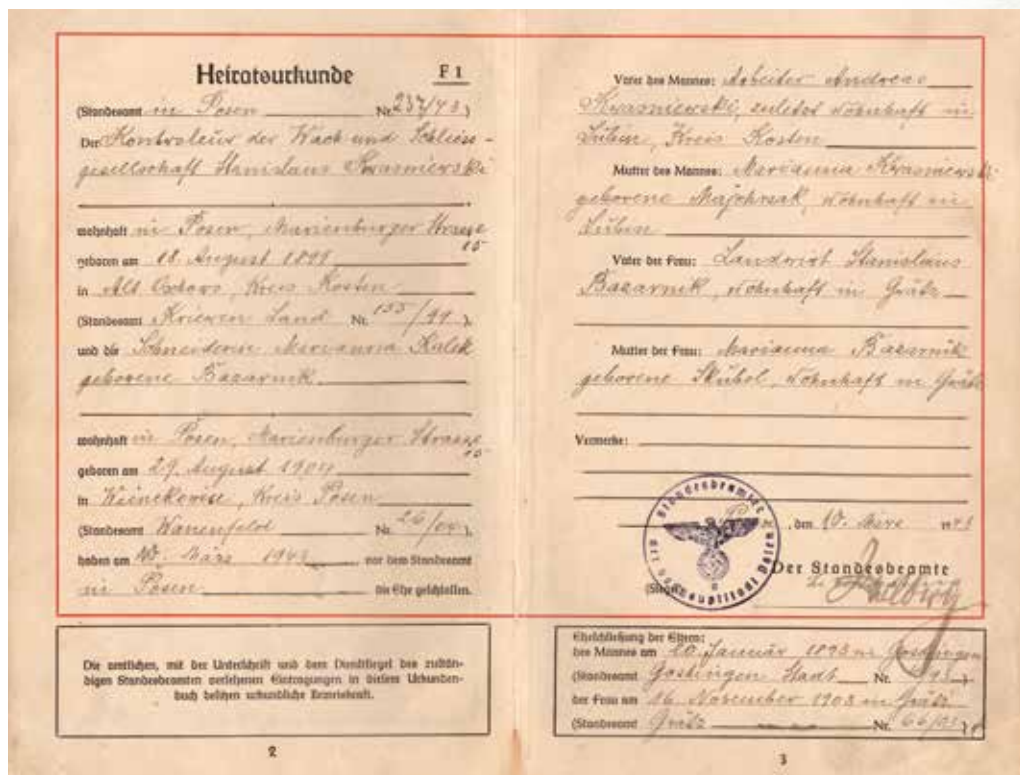 Heiratsurkunde F 1
(Standesamt in Posen Nr. 237/43)
Der Kontroleur der Wach und Schliess-
gesellschaft Stanislaus Kwasniewski
wohnhaft in Posen, Marienburger Strasse
15
geboren am 18. August 1899
in Alt, Kreis Kosten
(Standesamt Kriewen Land Nr. 155/99)
und die Schneiderin Marianna Kulek
geborene Bazarnik
wohnhaft in Posen, Marienburger Strasse
15
geboren am 29. August 1904
in, Kreis Posen
(Standesamt Nr. 26/04)
haben am 10. März 1943 vor dem Standesamt
in Posen die Ehe geschlossen.
Die amtlichen, mit der Unterschrift und dem Dienstsiegel des zustän-
digen Standesbeamten versehenen Eintragungen in diesem Urkunden-
buch besitzen urkundliche Beweiskraft.
2
Vater des Mannes: Arbeiter Andreas
Kwasniewski, zuletzt wohnhaft in
Lubin, Kreis Kosten
Mutter des Mannes: Marianna Kwasniewski
geborene, wohnhaft in
Lubin
Vater der Frau: Landwirt Stanislaus
Bazarnik, wohnhaft in Grätz
Mutter der Frau: Marianna Bazarnik
geborene, wohnhaft in Grätz
Vermerke:
, den 10. März 1943
Der Standesbeamte
(Siegel)
Standesbeamte der Gauhauptstadt Posen
Eheschließung der Eltern:
des Mannes am 20. Januar 1893 in Gostingen
(Standesamt Gostingen Stadt Nr.
der Frau am 16. November 1903 in Grätz
(Standesamt Grätz Nr. 66/03)
3